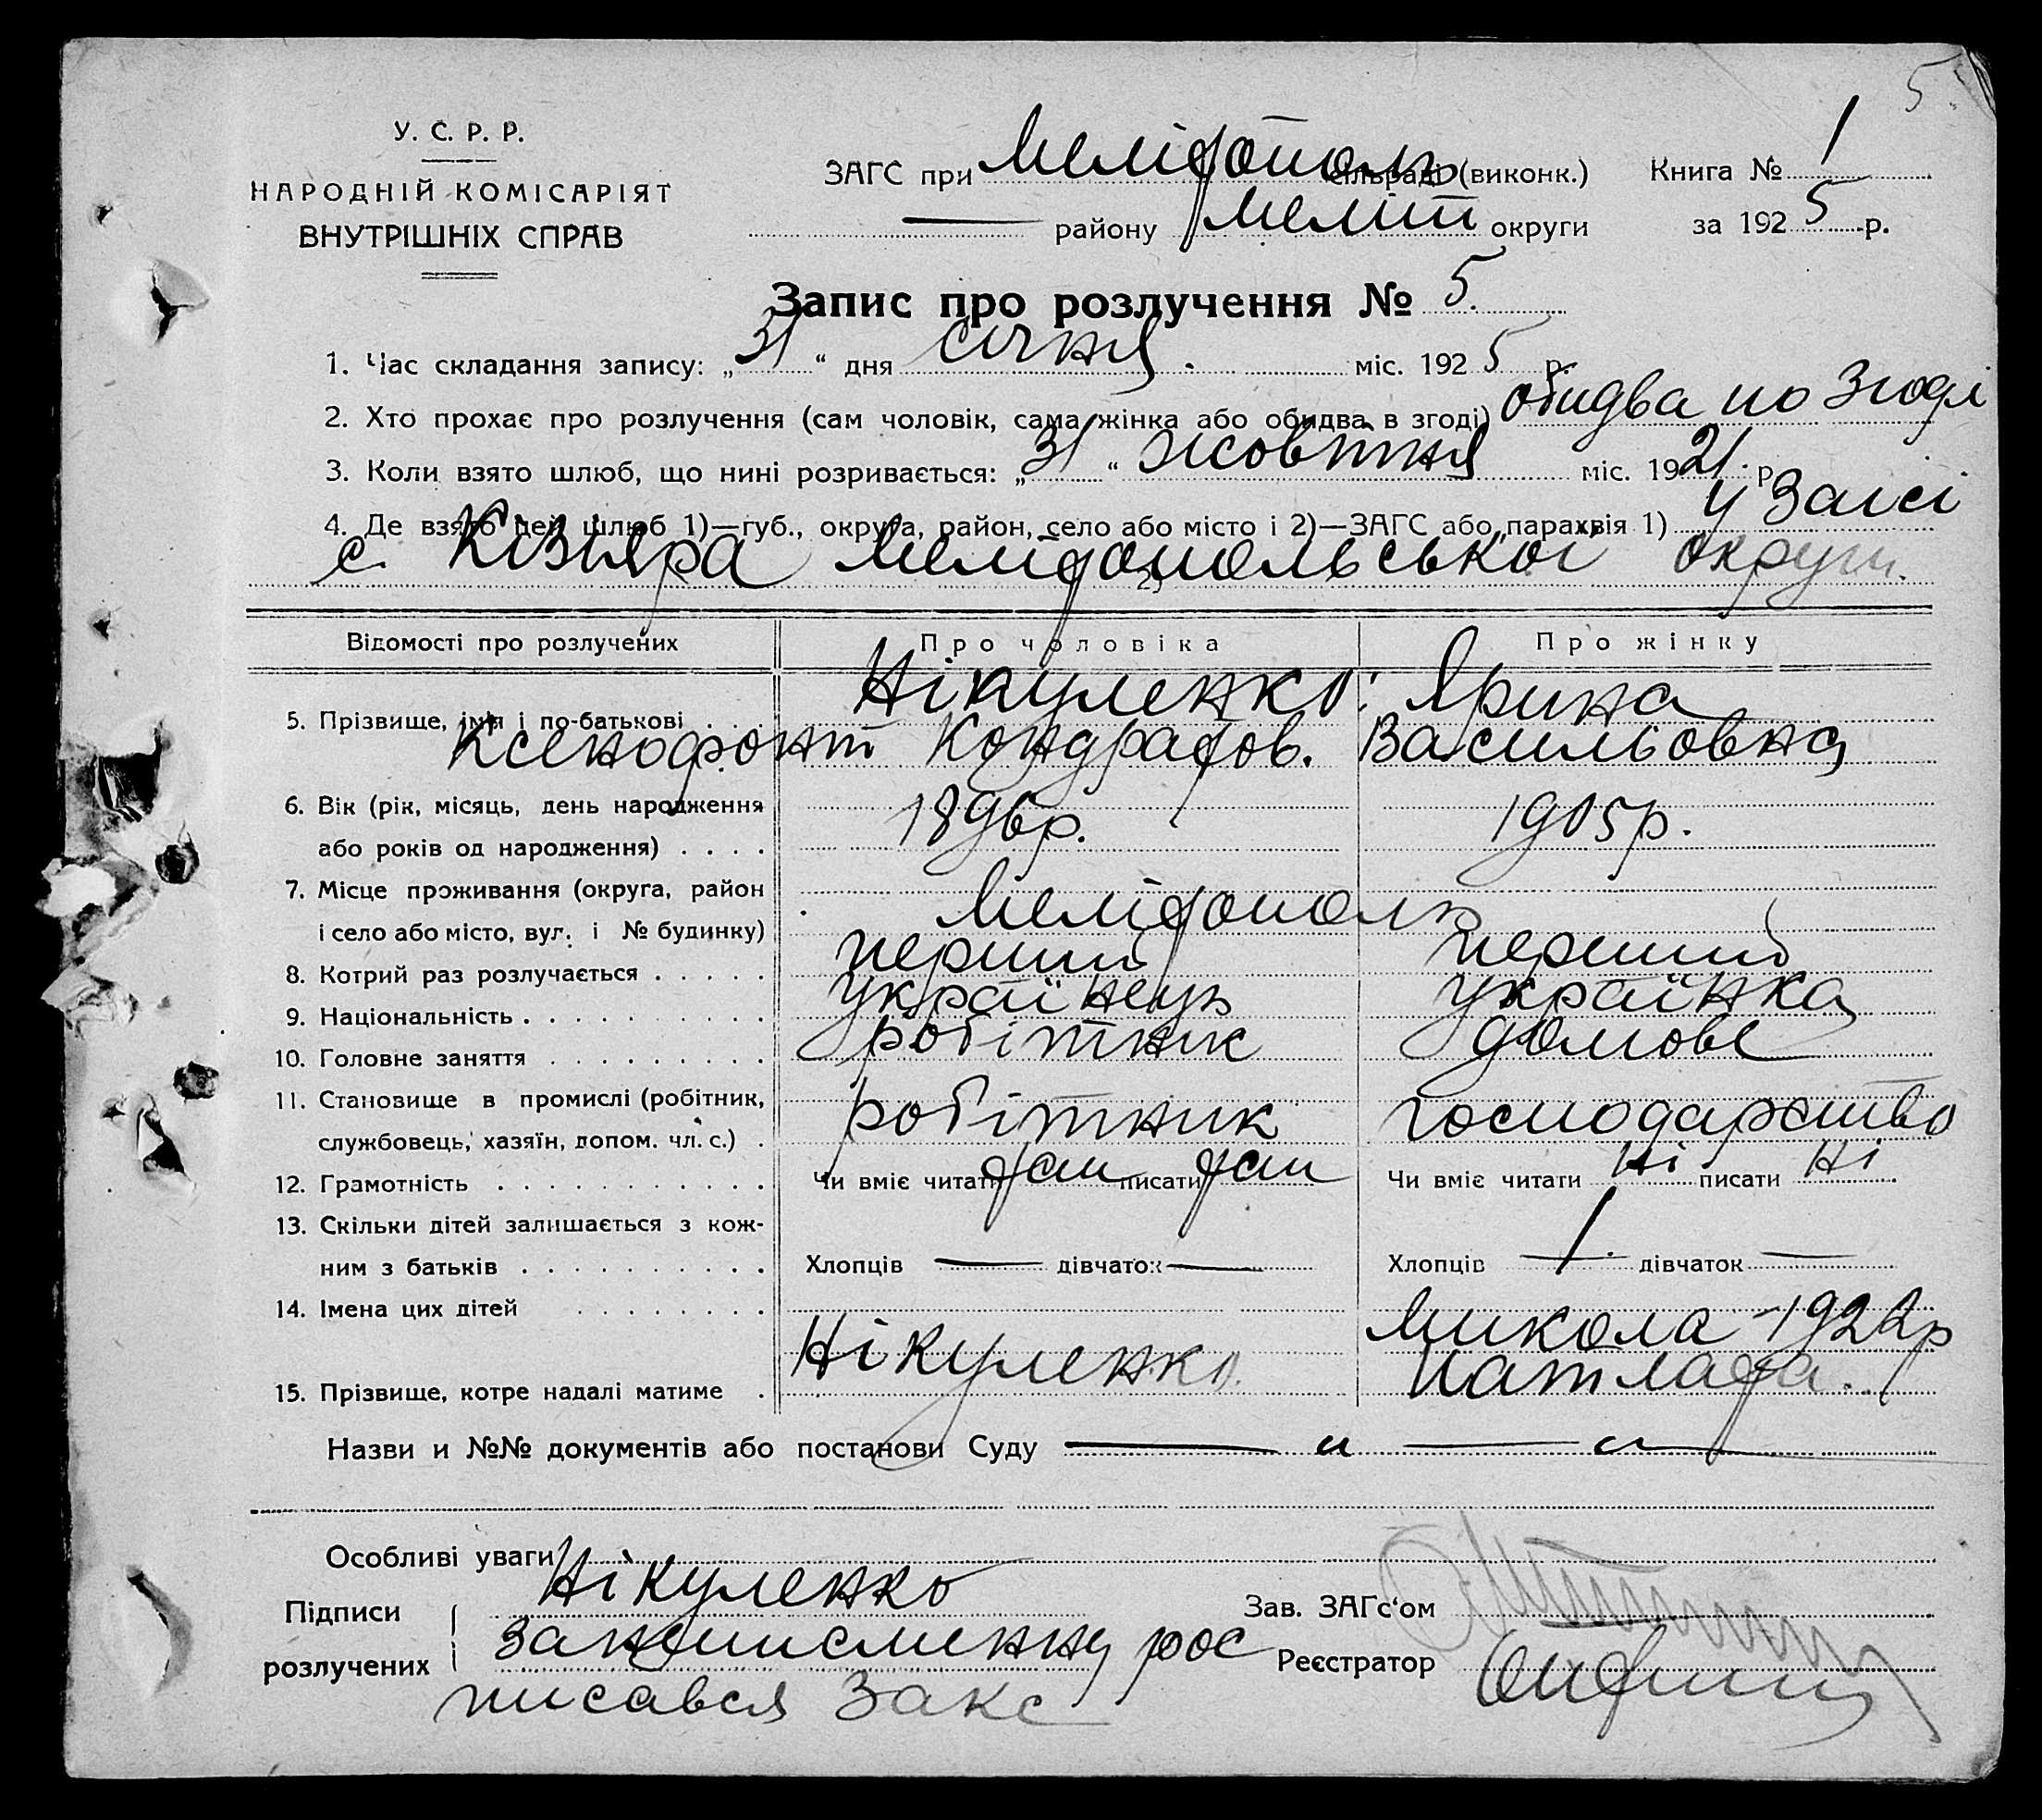 5.
У. С. Р. Р.
НАРОДНІЙ КОМІСАРІЯТ
ВНУТРІШНІХ СПРАВ
ЗАГС при Мелітополь сільраді (виконк.) Книга № 1
— району Меліт округи за 1925 р.
Запис про розлучення № 5.
1. Час складання запису: „31“ дня січня. міс. 1925 р.
2. Хто прохає про розлучення (сам чоловік, сама жінка або обидва в згоді) обидва по згоді
3. Коли взято шлюб, що нині розривається: „31“ жовтня міс. 1921 р.
4. Де взято цей шлюб 1)—губ., округа, район, село або місто і 2)—ЗАГС або парахвія 1) у Загсі
с. Кізіяра Мелітопольської округи.
2)
Відомості про розлучених Про чоловіка Про жінку
5. Прізвище, імя і по-батькові . . . Нікуленко: Ярина
Ксенофонт Кондратов. Васильовна
6. Вік (рік, місяць, день народження
або років од народження) . . . . 1896р. 1905р.
7. Місце проживання (округа, район
і село або місто, вул. і № будинку) Мелітополь
8. Котрий раз розлучається . . . . . перший перший
9. Національність . . . . . . . . . українець українка
10. Головне заняття . . . . . . . . робітник домове
11. Становище в промислі (робітник,
службовець, хазяїн, допом. чл. с.) . робітник господарство
12. Грамотність . . . . . . . . . . Чи вміє читати так писати так Чи вміє читати ні писати ні
13. Скільки дітей залишається з кож-
ним з батьків . . . . . . . . . Хлопців — дівчаток — Хлопців 1. дівчаток —
14. Імена цих дітей . . . . . . . Микола - 1922р
15. Прізвище, котре надалі матиме . Нікуленко. Патлата.
Назви и №№ документів або постанови Суду — „ — „ —
Особливі уваги
Підписи Нікуленко Зав. ЗАГс'ом
розлучених за неписменну рос Реєстратор
писався Закс